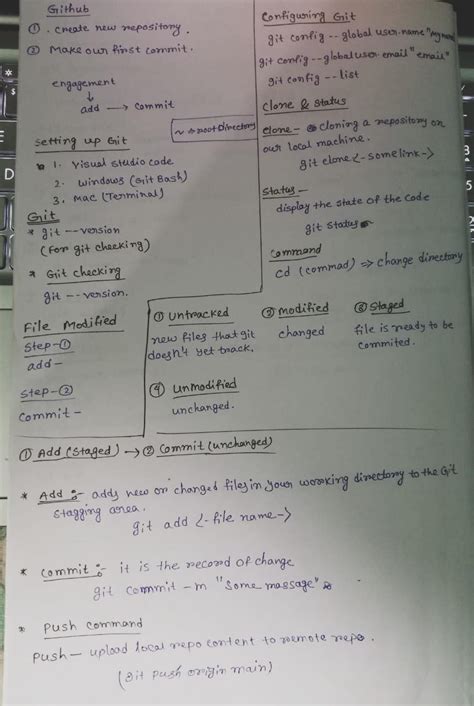 Github
①. create new repository.
② Make our first commit.
engagement
↓
add → commit
~ → root Directory
Setting up Git
1. Visual studio code
2. Windows (Git Bash)
3. Mac (Terminal)
Git
* git --version
(for git checking)
* Git checking
git --version.
File Modified
Step-①
add -
Step-②
commit -
Configuring Git
git config --global user.name "My name"
git config --global user.email "email"
git config --list
Clone & Status
Clone - cloning a repository on
our local machine.
git clone <-some link->
Status -
display the state of the code
git status
Command
cd (commad) ⇒ change directory
① Untracked
new files that git
doesn't yet track.
② Modified
changed
③ Staged
file is ready to be
commited.
④ Unmodified
unchanged.
① Add (Staged) → ② Commit (unchanged)
* Add :- adds new or changed files in your working directory to the Git
stagging area.
git add <-file name->
* Commit :- it is the record of change
git commit -m "Some massage"
* Push command
Push - upload local repo content to remote repo.
(Git push origin main)